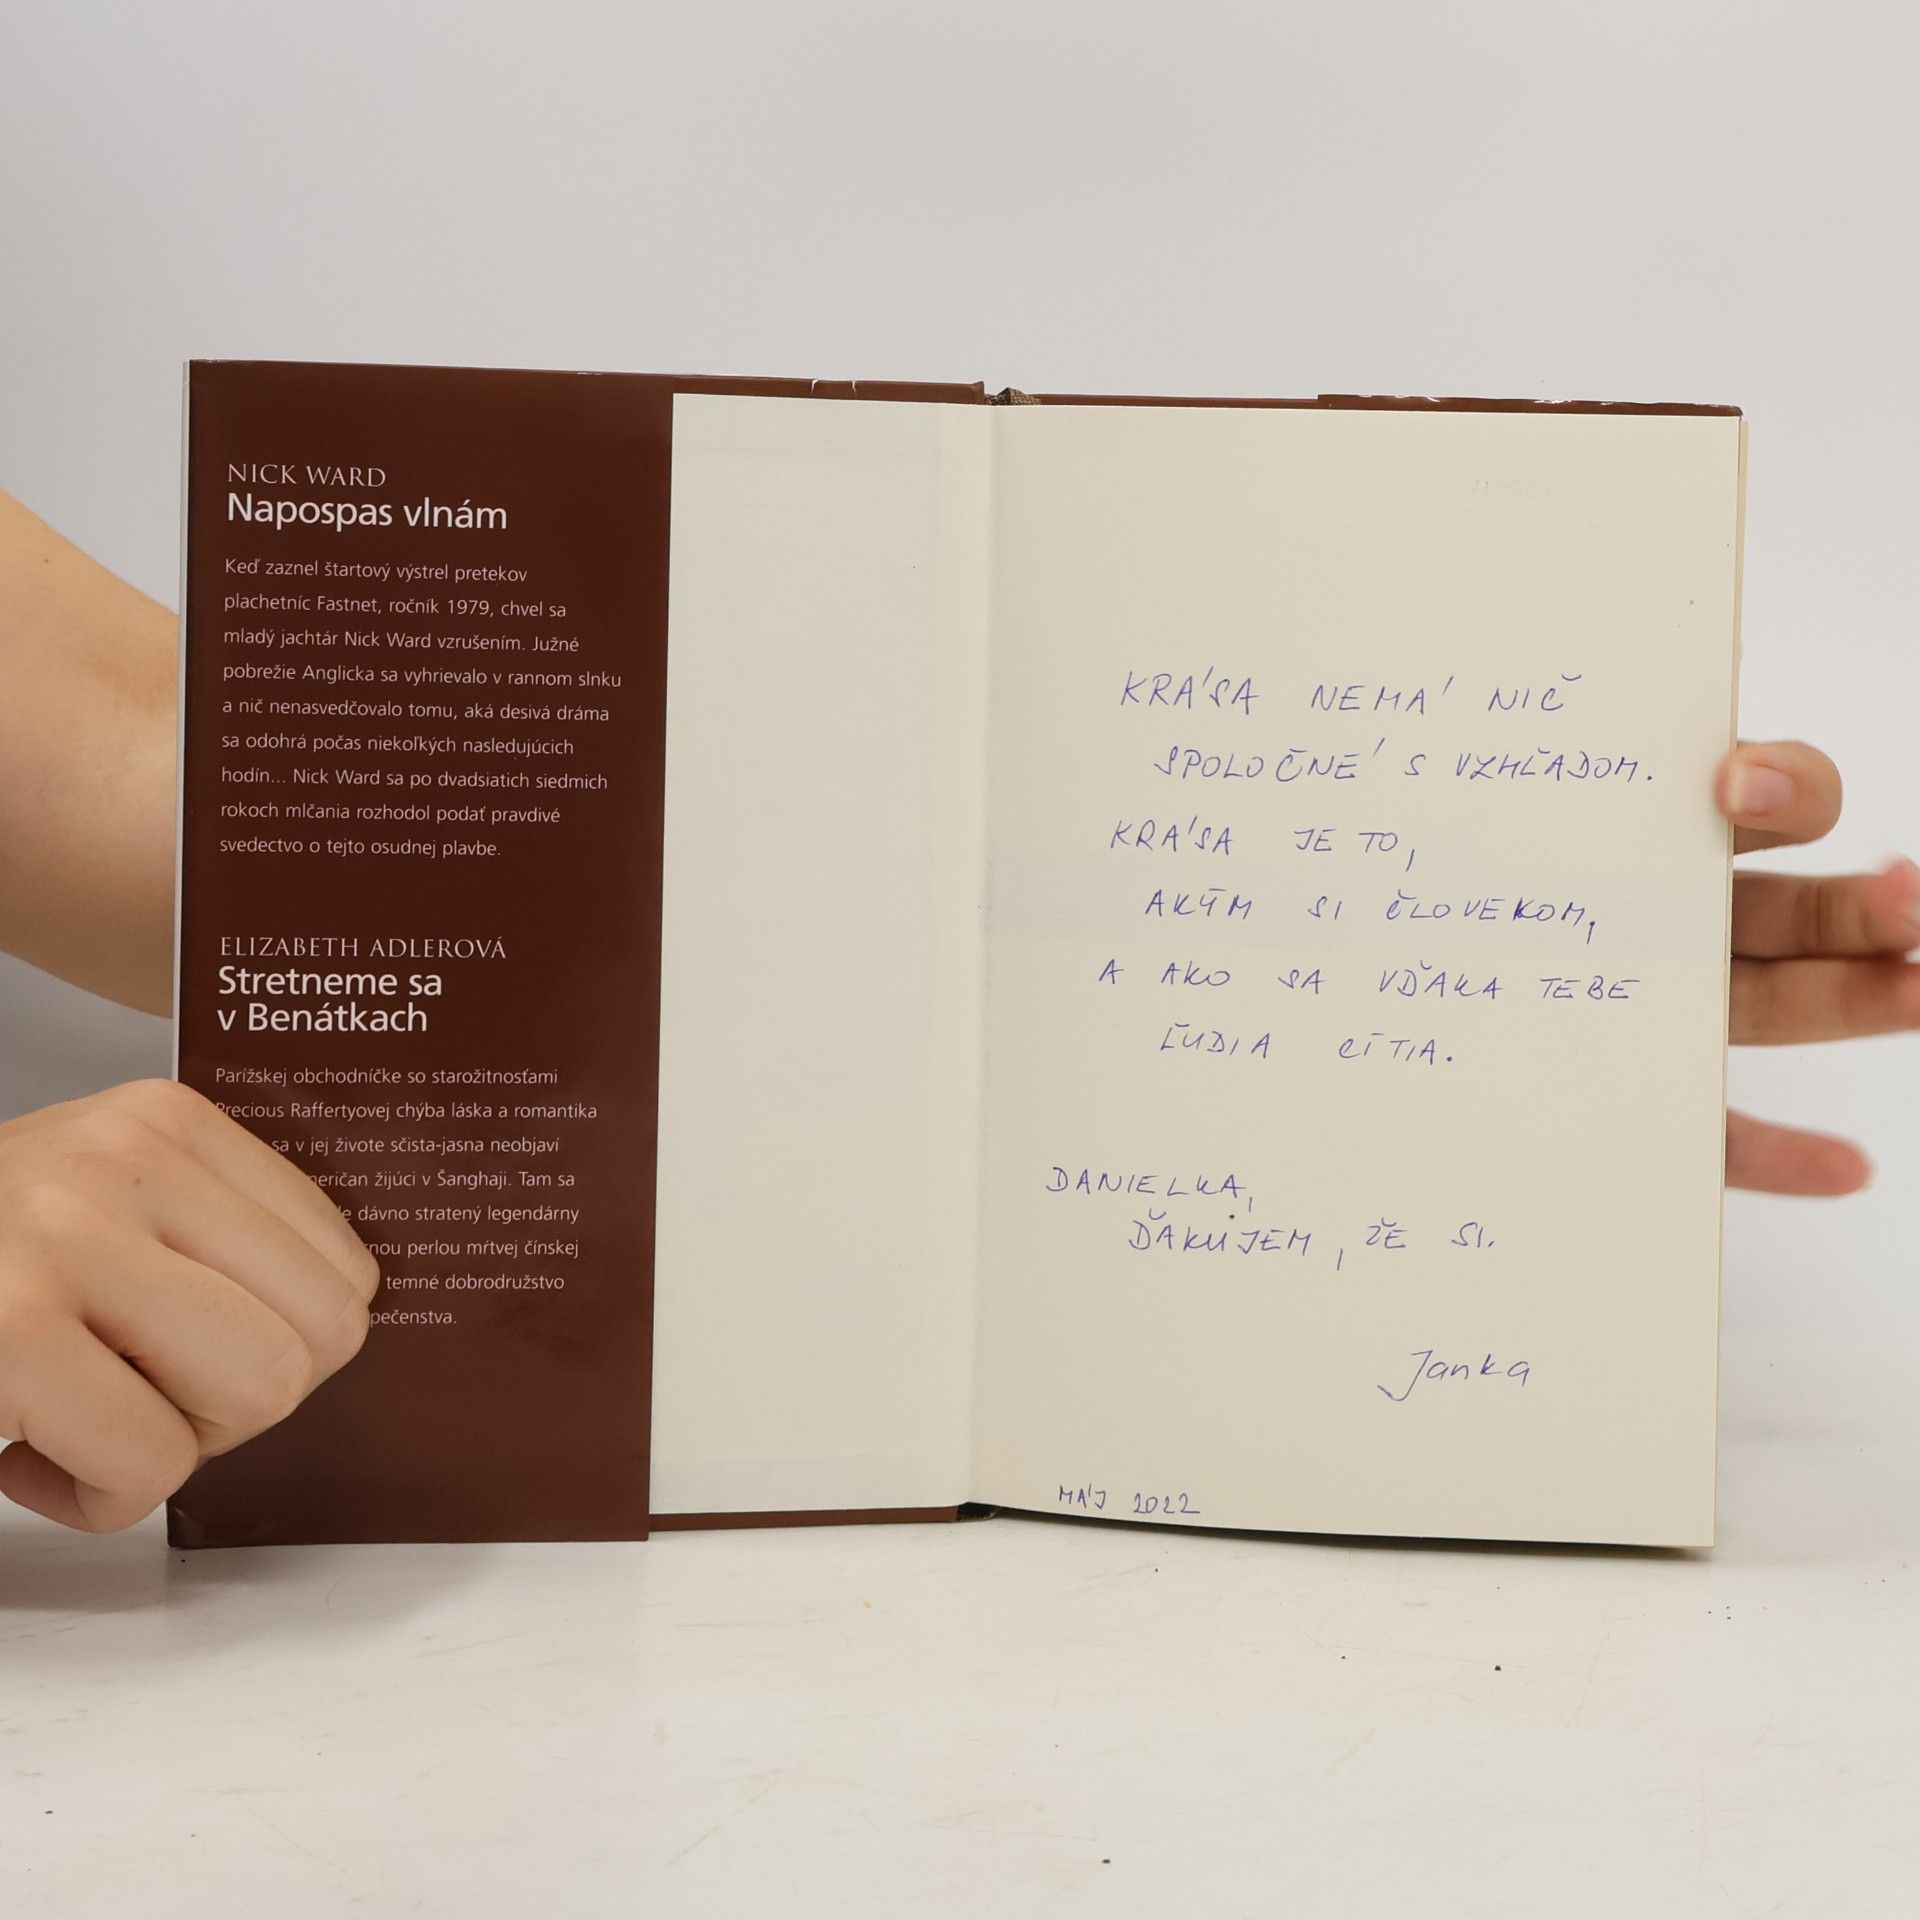 NICK WARD
Napospas vlnám
Keď zaznel štartový výstrel pretekov
plachetníc Fastnet, ročník 1979, chvel sa
mladý jachtár Nick Ward vzrušením. Južné
pobrežie Anglicka sa vyhrievalo v rannom slnku
a nič nenasvedčovalo tomu, aká desivá dráma
sa odohrá počas niekoľkých nasledujúcich
hodín... Nick Ward sa po dvadsiatich siedmich
rokoch mlčania rozhodol podať pravdivé
svedectvo o tejto osudnej plavbe.
ELIZABETH ADLEROVÁ
Stretneme sa
v Benátkach
Parížskej obchodníčke so starožitnosťami
Precious Raffertyovej chýba láska a romantika
sa v jej živote sčista-jasna neobjaví
žijúci v Šanghaji. Tam sa
dávno stratený legendárny
perlou mŕtvej čínskej
temné dobrodružstvo
KRÁSA NEMÁ NIČ
SPOLOČNÉ S VZHĽADOM.
KRÁSA JE TO,
AKÝM SI ČLOVEKOM,
A AKO SA VĎAKA TEBE
ĽUDIA CÍTIA.
DANIELKA,
ĎAKUJEM, ŽE SI.
Janka
MÁJ 2022